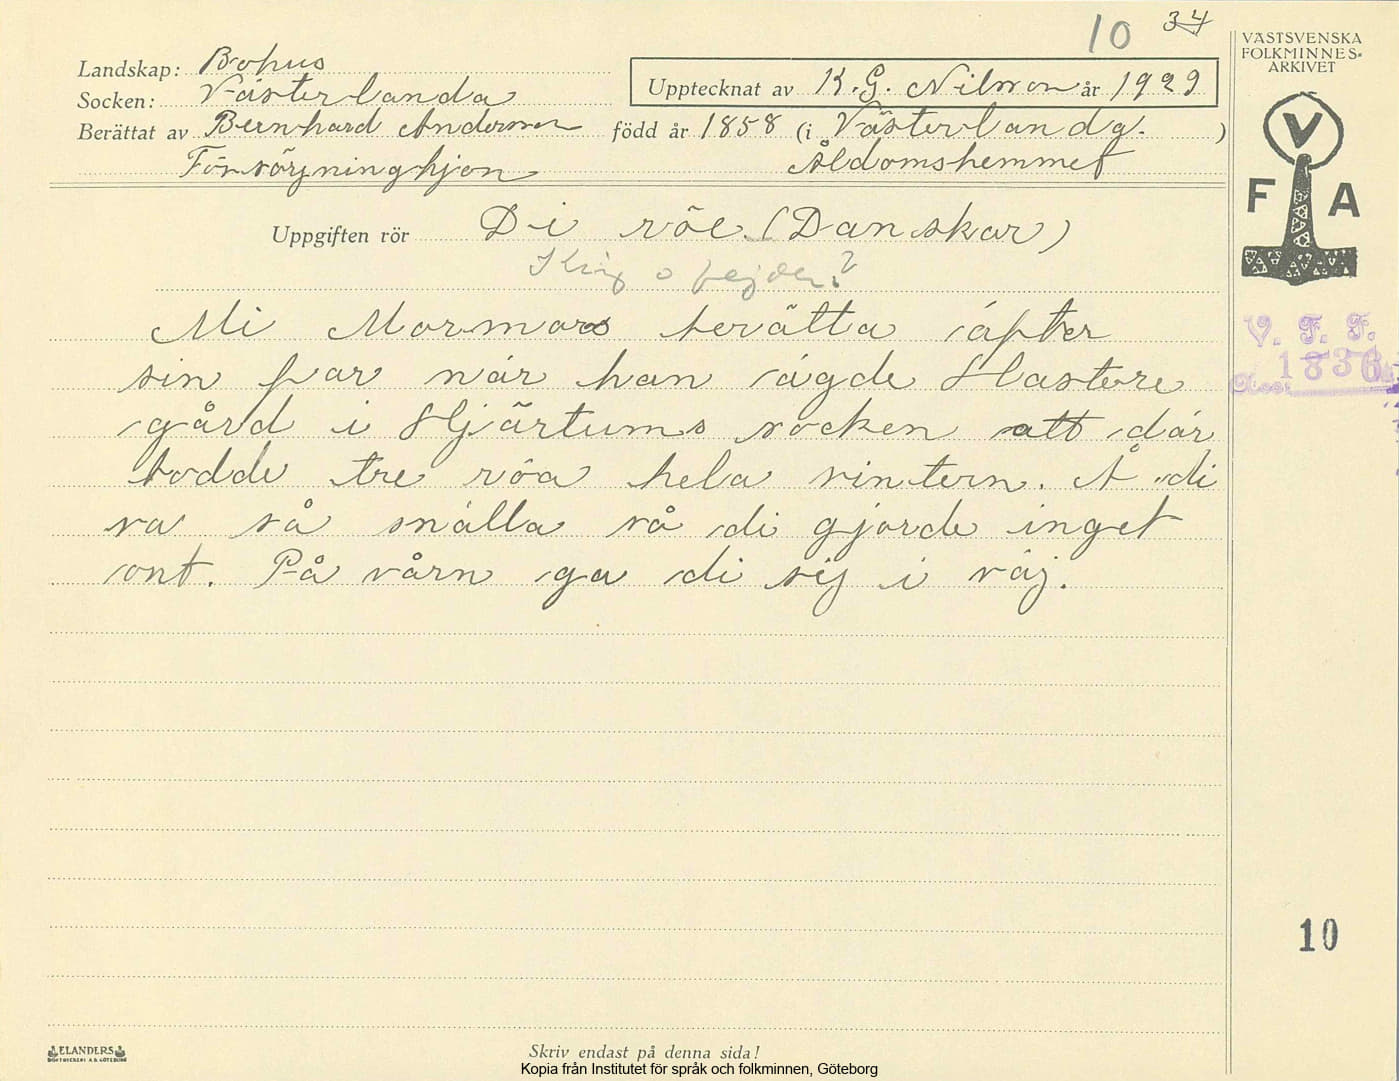 10 34
VÄSTSVENSKA
FOLKMINNES-
ARKIVET
V
F A
Landskap: Bohus
Socken: Västerlanda
Upptecknat av K. G. Nilsson år 1929
Berättat av Bernhard Andersson född år 1858 (i Västerlanda. )
Försörjninghjon Åldomshemmet
Uppgiften rör Di röe (Danskar)
Krig o fejder?
Mi Mormors berätta äfter
sin far når han ägde Hastere
gård i Hjärtums socken att där
bodde tre röa hela vintern. Å di
va så snälla så di gjorde inget
ont. På vårn ga di sij i väj.
V. F. F.
1836
Acc.
10
ELANDERS
BOKTRYCKERI A.B. GÖTEBORG
Skriv endast på denna sida!
Kopia från Institutet för språk och folkminnen, Göteborg